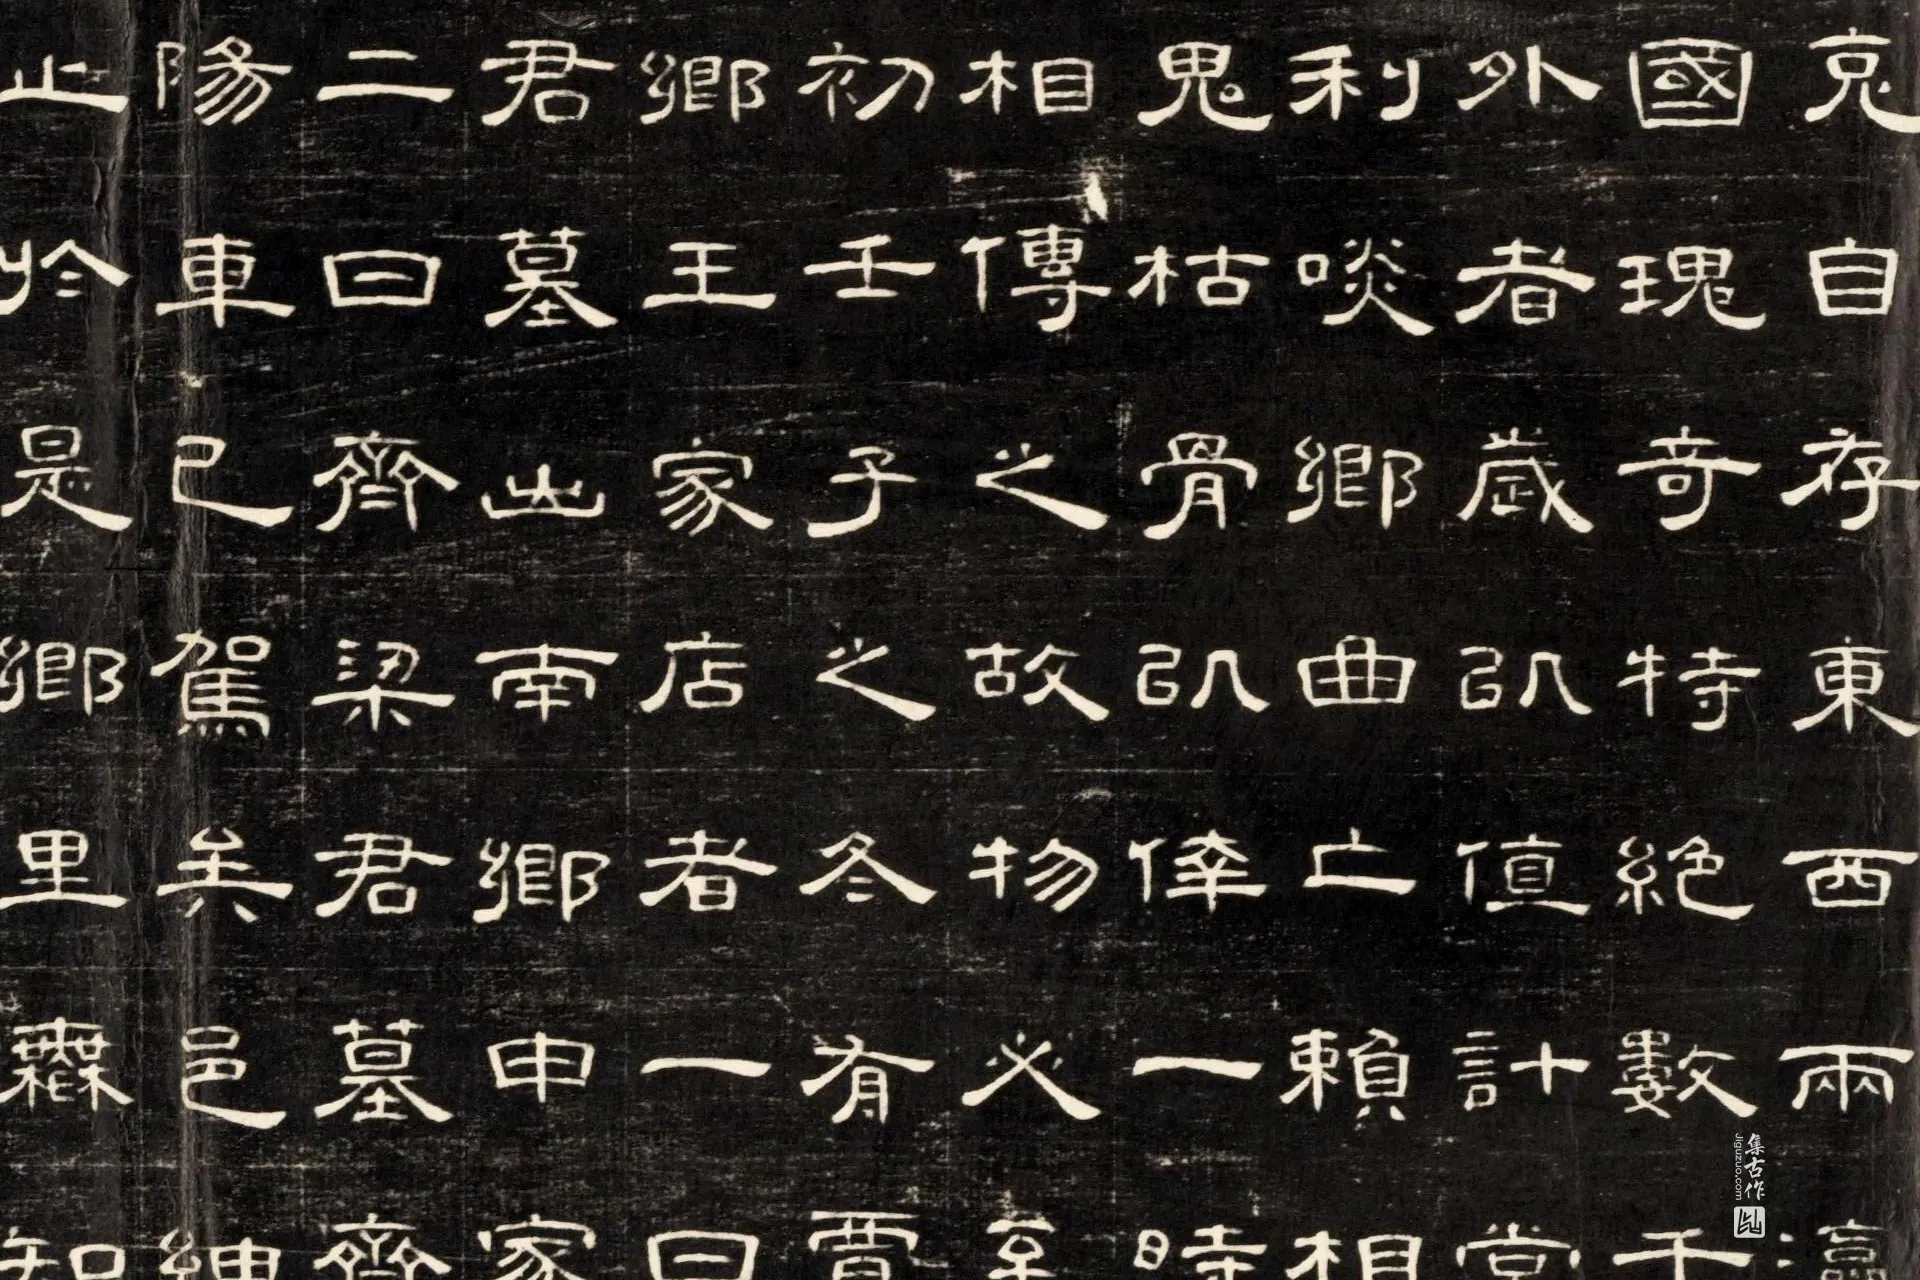 克自存東西兩瀛
國瑰奇特絕數千
外者歲以值計
利啖鄉曲亡賴相
鬼枯骨以倖一時
相傳之故物必至
初壬子之冬有賈
鄉王家店者一曰
君墓山南鄉申家
二曰齊梁君墓齊
陽車已駕矣邑紳
止於是鄉里無知
集古作
Jiguzuo.com